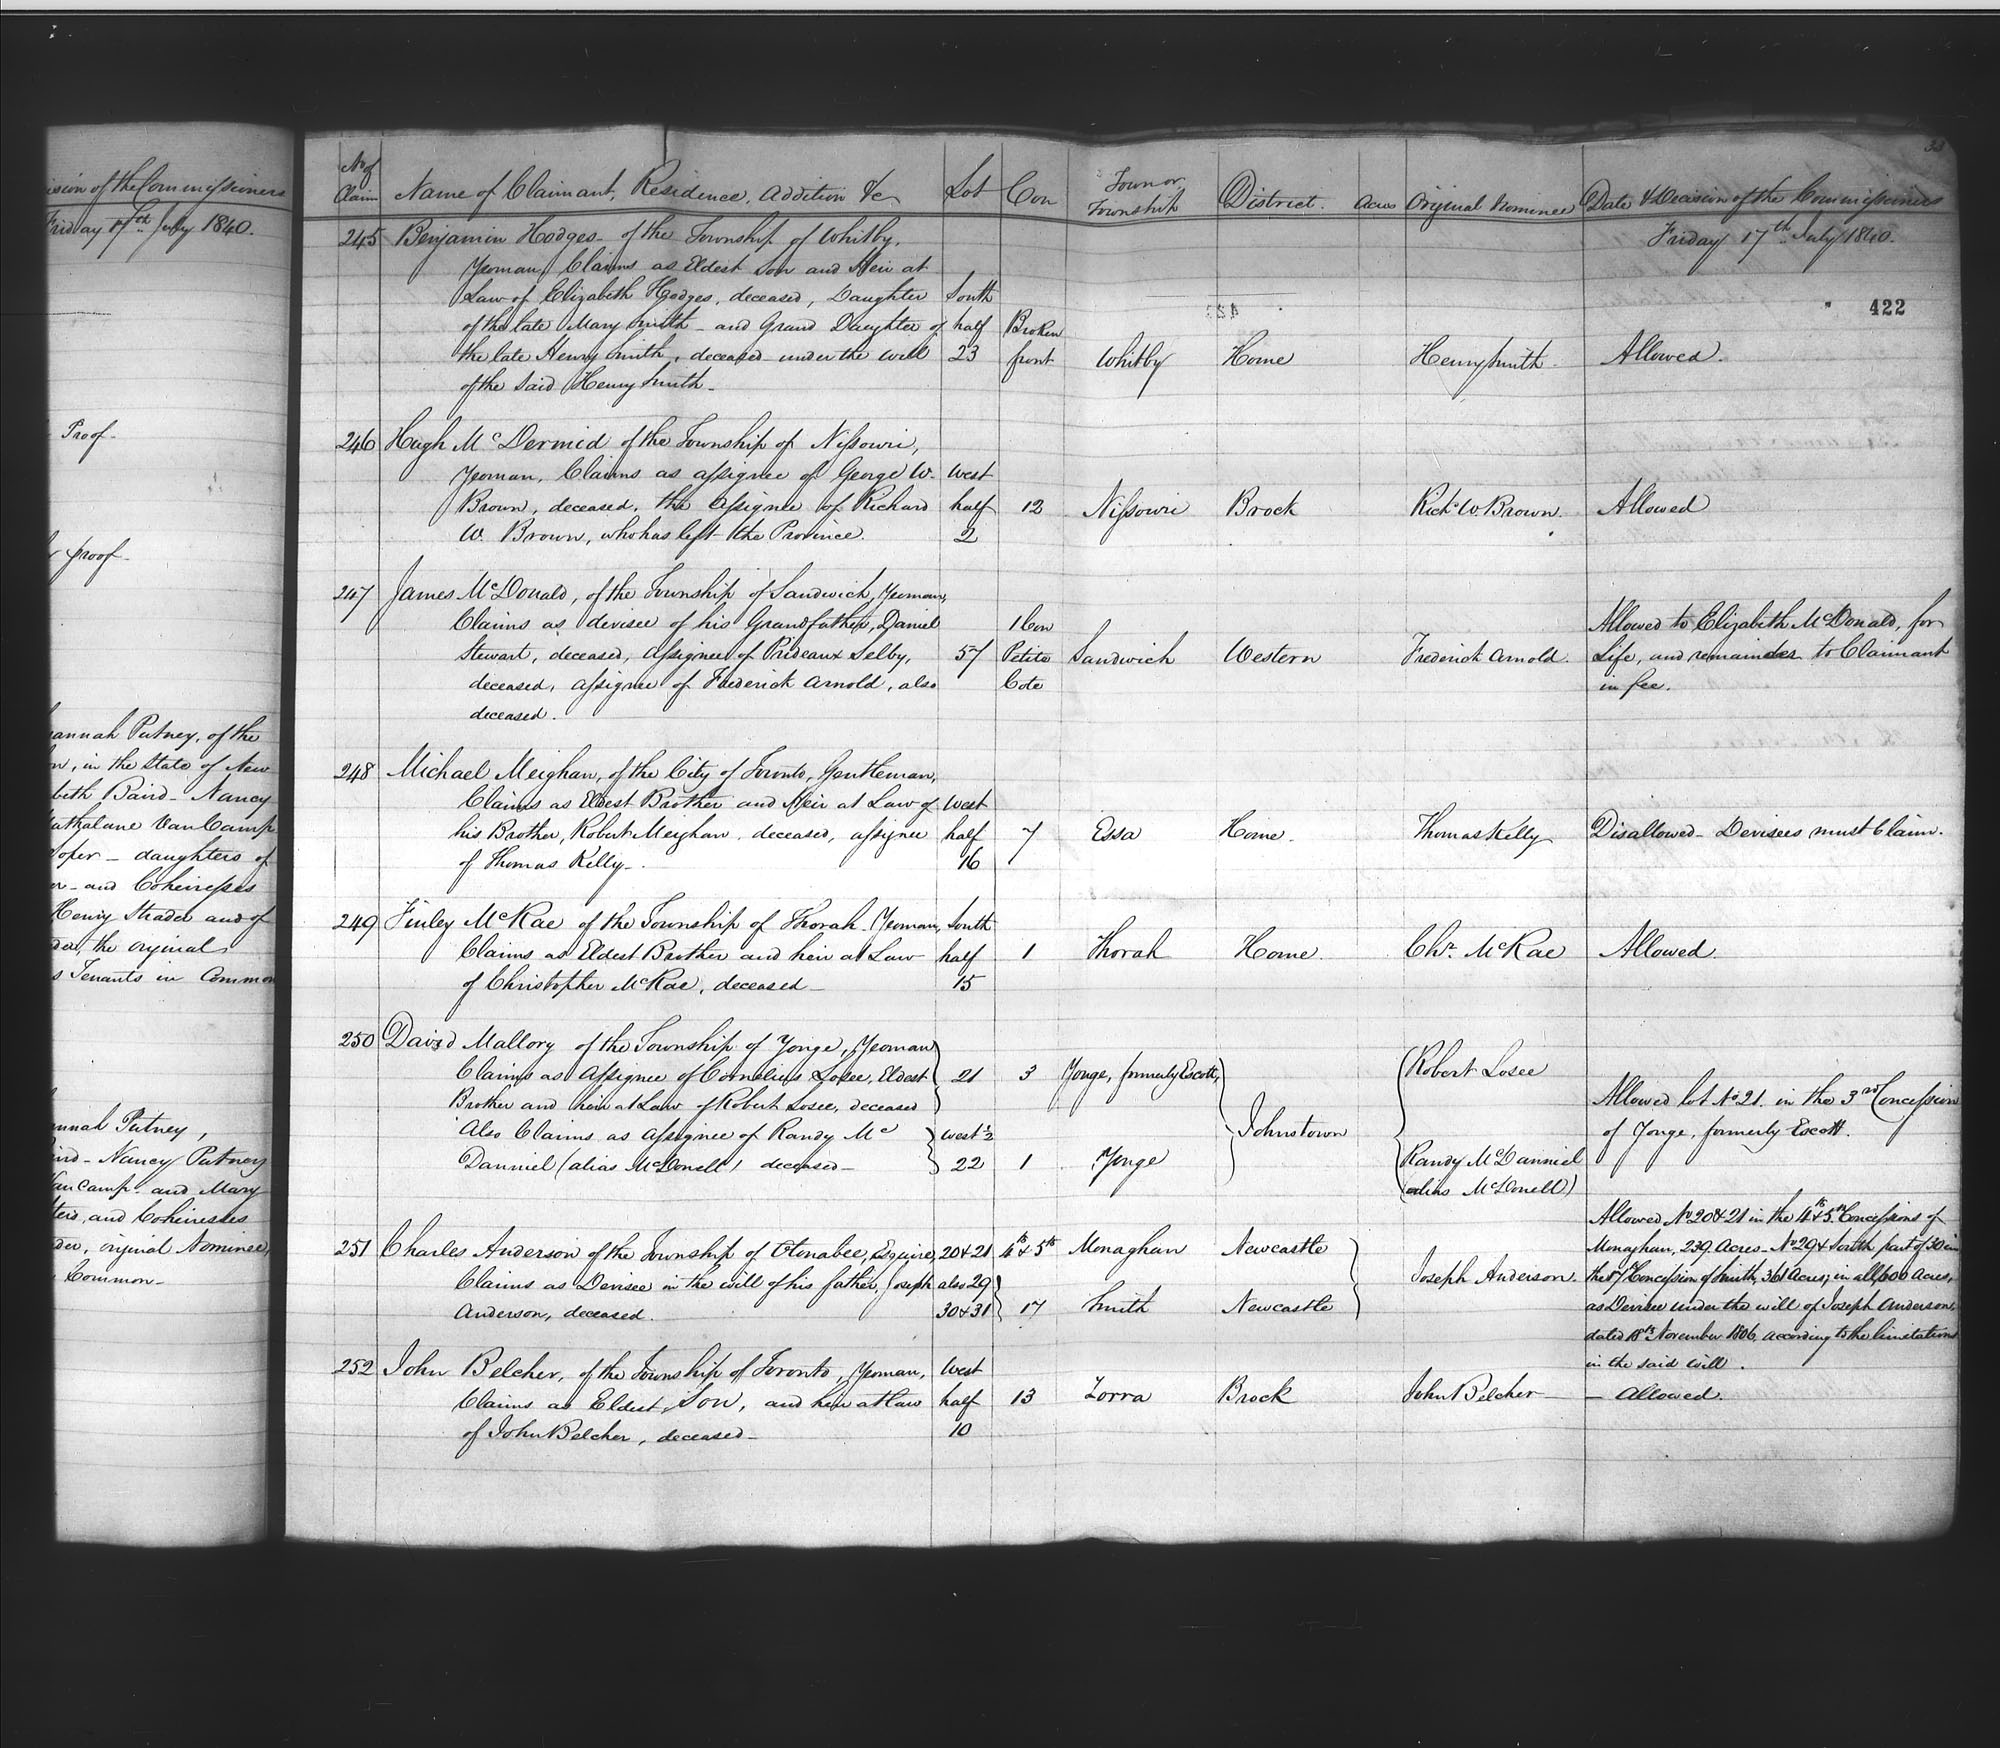 ision of the Commissioners
Friday 17th July 1840.
Proof-
proof-
annah Putney, of the
in the State of New
beth Baird- Nancy
athalane Van Camp
Soper- daughters of
and Coheiresses
Henry Strader and of
the original
s Tenants in Common
nnah Putney,
ird- Nancy Putney
an Camp- and Mary
ters, and Coheiresses
original Nominee,
Common-
33
No of Claim
Name of Claimant, Residence, Addition &c
Lot
Con
Town or Township
District.
Acres
Original Nominee
Date & Decision of the Commissioners
Friday 17th July 1840.
422
245 Benjamin Hodges- of the Township of Whitby,
Yeoman, Claims as Eldest Son and Heir at
Law of Elizabeth Hodges, deceased, Daughter South
of the late Mary Smith- and Grand Daughter of half Broken
the late Henry Smith, deceased under the will 23 front Whitby Home Henry Smith- Allowed.
of the said Henry Smith-
246 Hugh McDermid of the Township of Nissouri,
Yeoman, Claims as assignee of George W. West
Brown, deceased, the assignee of Richard half 12 Nissouri Brock Richd W. Brown. Allowed
W. Brown, who has left the Province. 2
247 James McDonald, of the Township of Sandwich, Yeoman,
Claims as devisee of his Grandfather, Daniel 1 Con Allowed to Elizabeth McDonald, for
Stewart, deceased, assignee of Prideaux Selby, 57 Petite Sandwich Western Frederick Arnold. Life, and remainder to Claimant
deceased, assignee of Frederick Arnold, also Cote in fee.
deceased.
248 Michael Meighan, of the City of Toronto, Gentleman,
Claims as Eldest Brother and Heir at Law of West
his Brother, Robert Meighan, deceased, assignee half 7 Essa Home. Thomas Kelly Disallowed- Devisees must Claim.
of Thomas Kelly- 16
249 Finley McRae of the Township of Thorah- Yeoman, South
Claims as Eldest Brother and heir at Law half 1 Thorah Home. Chr. McRae Allowed.
of Christopher McRae, deceased- 15
250 David Mallory of the Township of Yonge, Yeoman
Claims as Assignee of Cornelius Losee, Eldest 21 3 Yonge, formerly Escott, Robert Losee
Brother and heir at Law of Robert Losee, deceased Allowed lot No 21. in the 3rd Concession
Also Claims as Assignee of Randy Mc West 1/2 Johnstown of Yonge, formerly Escott.
Danniel (alias McDonell) deceased- 22 1 Yonge Randy McDanniel
(alias McDonell)
Allowed No 20 & 21 in the 4th & 5th Concessions of
251 Charles Anderson of the Township of Otonabee, Esquire, 20 & 21 4th & 5th Monaghan Newcastle Monaghan, 239 Acres- No 29 & South part of 30 in
Claims as Devisee in the will of his father, Joseph also 29 Joseph Anderson. the 17 Concession of Smith, 361 Acres; in all, 600 Acres,
Anderson, deceased. 30 & 31 17 Smith Newcastle as Devisee under the will of Joseph Anderson,
dated 18th November 1806, according to the limitations
in the said Will.
252 John Belcher, of the Township of Toronto, Yeoman, West
Claims as Eldest Son, and heir at law half 13 Zorra Brock John Belcher - Allowed.
of John Belcher, deceased- 10